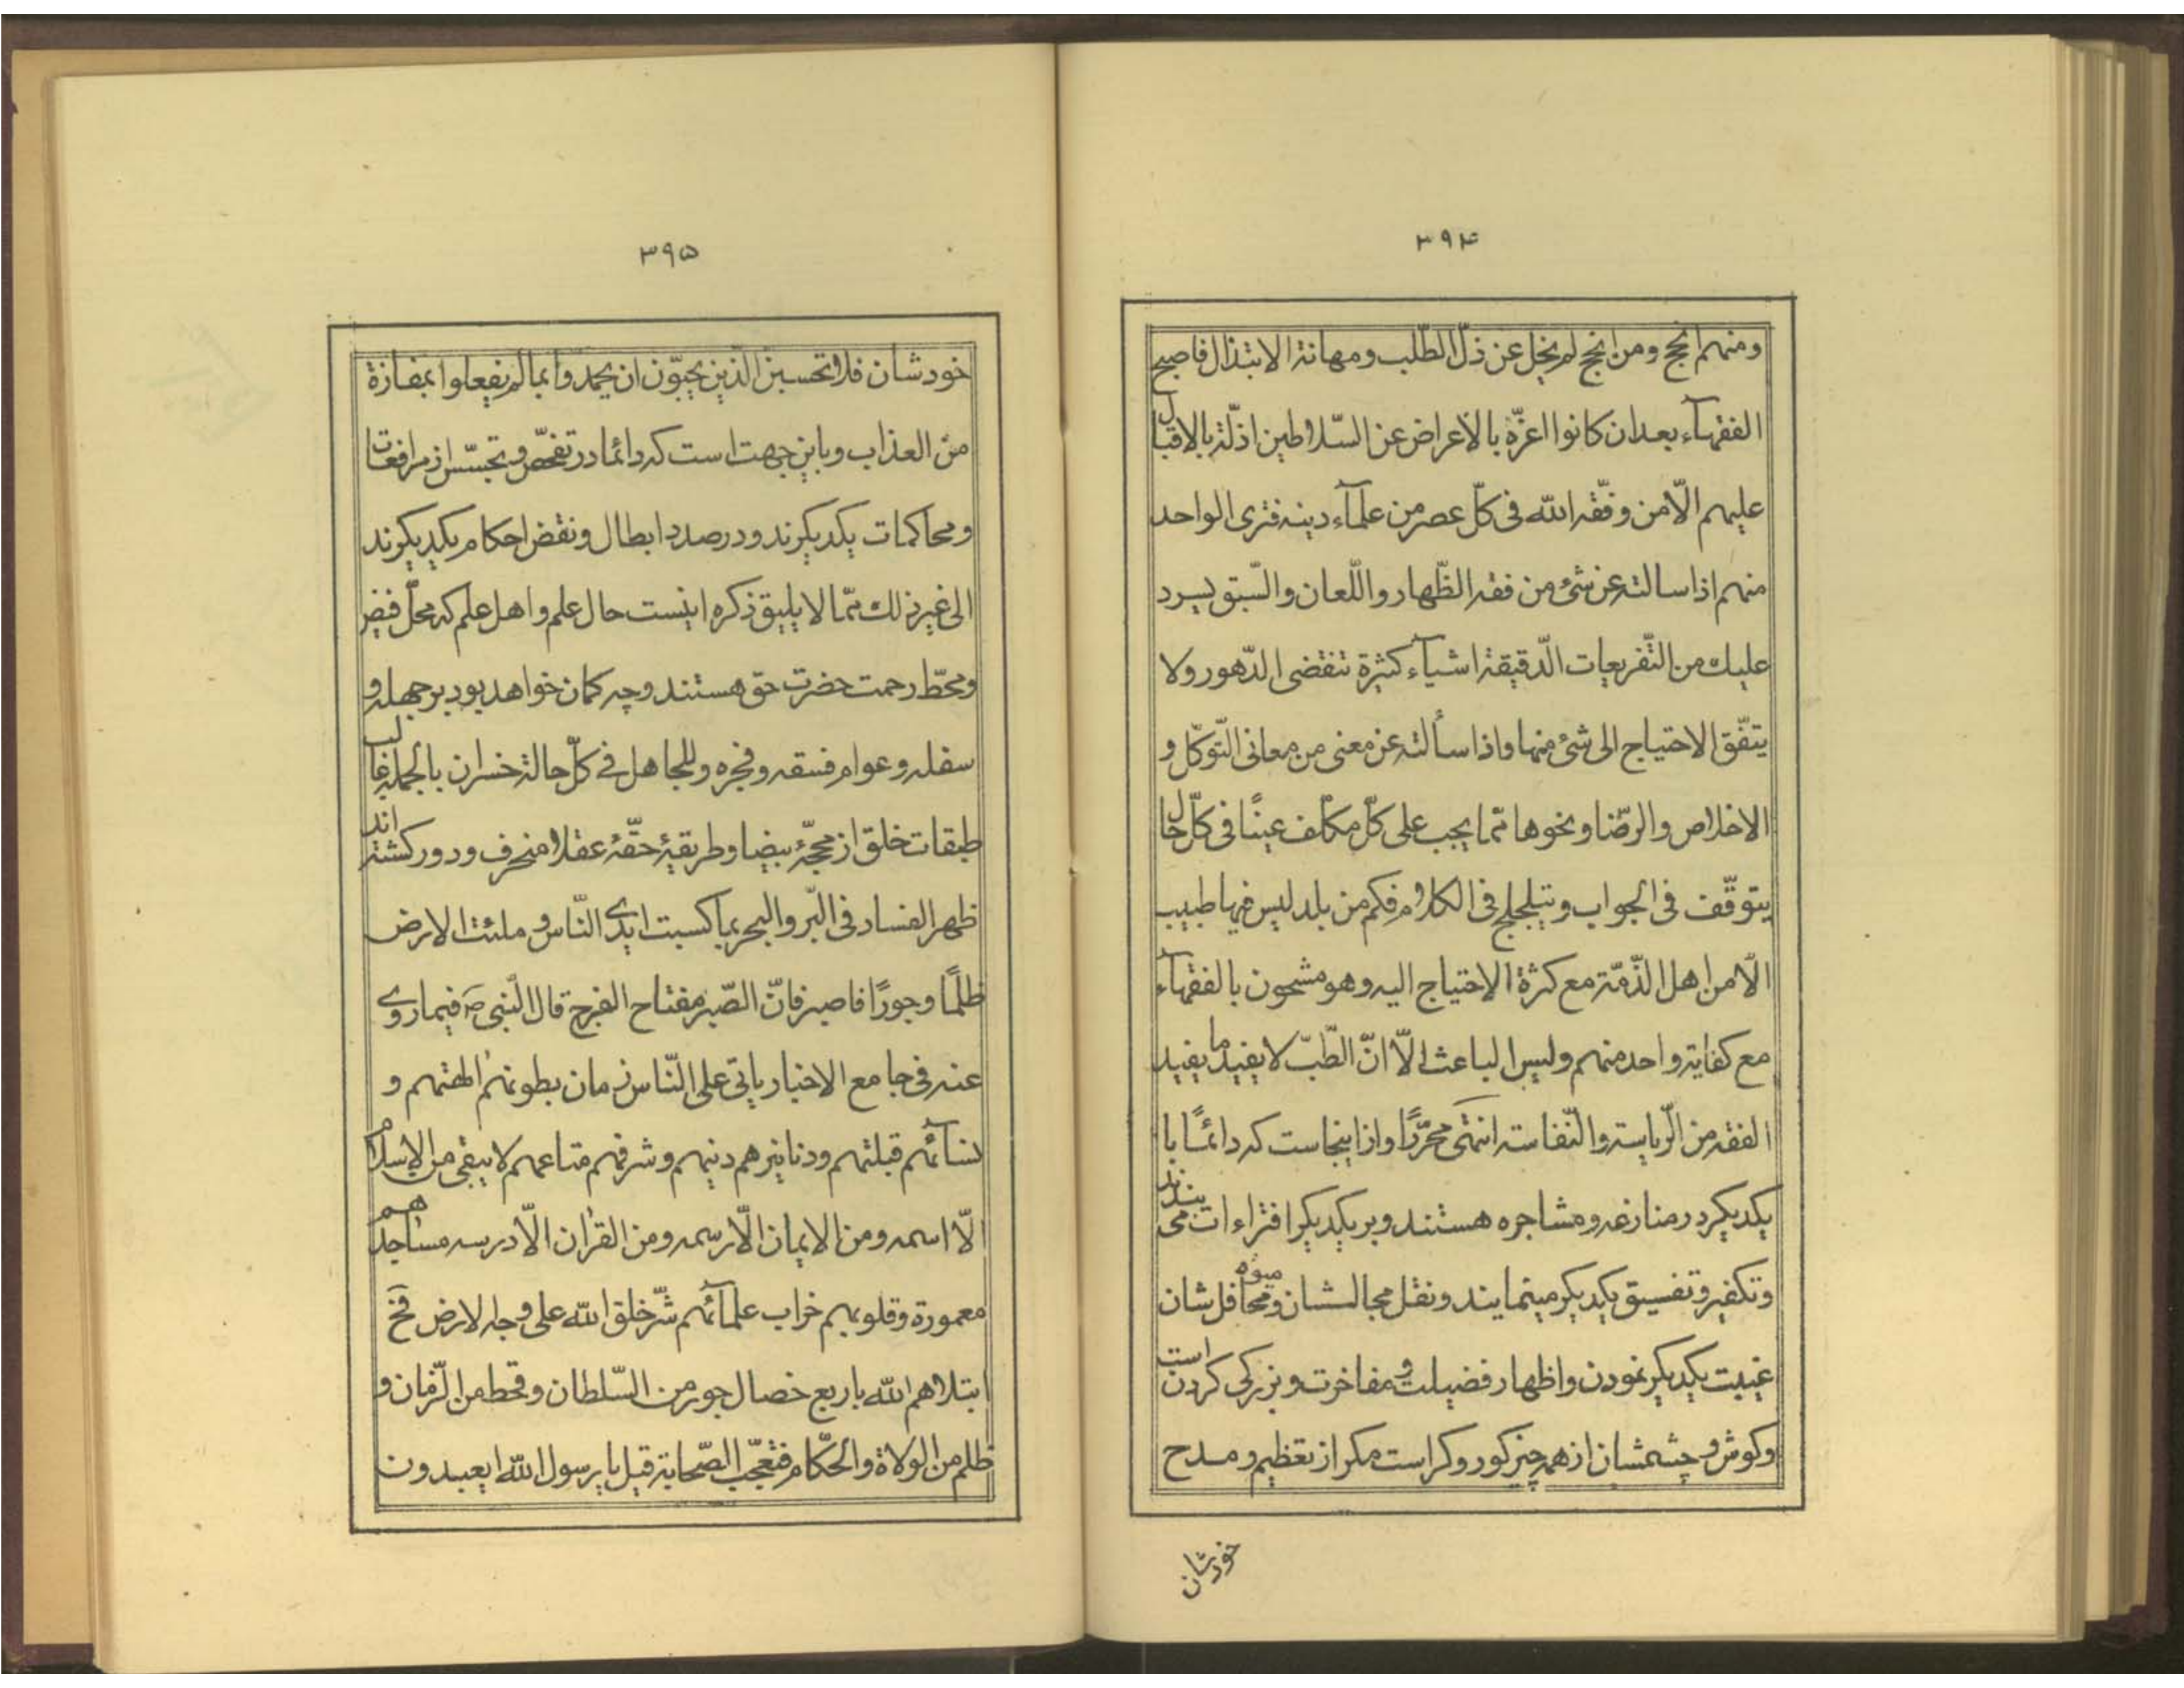 ۳۹۴
ومنهم انجح ومن انجح لم يخل عن ذلّ الطّلب ومهانة الابتذال فاصبح
الفقهآء بعد ان كانوا اعزّه بالاعراض عن السّلاطين اذلّة بالاقبال
عليهم الّا من وفّقه الله فى كلّ عصر من علمآء دينه فترى الواحد
منهم اذا سالته عن شئ من فقه الظّهار واللّعان والسّبق يسرد
عليك من التّفريعات الدّقيقة اشيآء كثيرة تنقضى الدّهور ولا
يتفّق الاحتياج الى شئ منها واذا سألته عن معنى من معانى التّوكّل و
الاخلاص والرضّا ونحوها ممّا يجب على كلّ مكلّف عينًا فى كلّ حال
يتوقّف فى الجواب ويتلجلج فى الكلام فكم من بلد ليس فيها طبيب
الّا من اهل الذّمّة مع كثرة الاحتياج اليه وهو مشحون بالفقهآء
مع كفاية واحد منهم وليس الباعث الّا انّ الطّبّ لا يفيد ما يفيد
الفقه من الرّياسة والنّفاسة انتهى محرّرًا واز اينجاست كه دائمًا با
يكديكر در منازعه و مشاجره هستند و بر يكديكر افتراءات مى بندند
وتكفير وتفسيق يكديكر مينمايند ونقل مجالسشان وميوه محافل شان
غيبت يكديكر نمودن واظهار فضيلت و مفاخرت و بزركى كردن است
وكوش و چشمشان از همه چيز كور وكر است مكر از تعظيم و مدح
خودشان
۳۹۵
خودشان فلا تحسبنّ الّذين يحبّون ان يحمدوا بما لم يفعلوا بمفازة
من العذاب وباين جهت است كه دائما در تفحّص و تجسّس از مرافعات
ومحاكمات يكديكرند ودر صدد ابطال ونقض احكام يكديكرند
الى غير ذلك ممّا لا يليق ذكره اينست حال علم و اهل علم كه محلّ فيض
ومحطّ رحمت حضرت حق هستند و چه كمان خواهد بود بر جهله و
سفله و عوام فسقه و فجره و للجاهل فى كلّ حالة خسران بالجمله غالب
طبقات خلق از محجّهٔ بيضا و طريقهٔ حقّهٔ عقلا منحرف و دور كشته اند
ظهر الفساد فى البّر والبحر بما كسبت ايدى النّاس و ملئت الارض
ظلمًا وجورًا فاصبر فانّ الصّبر مفتاح الفرج قال النّبى ص فيما روى
عنه فى جامع الاخبار ياتى على النّاس زمان بطونهم الهتهم و
نسآئهم قبلتهم ودنانيرهم دينهم وشرفهم متاعهم لا يبقى من الاسلام
الّا اسمه ومن الايمان الّا رسمه ومن القران الّا درسه مساجدهم
معمورة وقلوبهم خراب علمآئهم شرّ خلق الله على وجه الارض فح
ابتلاهم الله باربع خصال جور من السّلطان وقحط من الزّمان و
ظلم من الولاة والحكّام فتعجّب الصّحابة قيل يا رسول الله ايعبدون